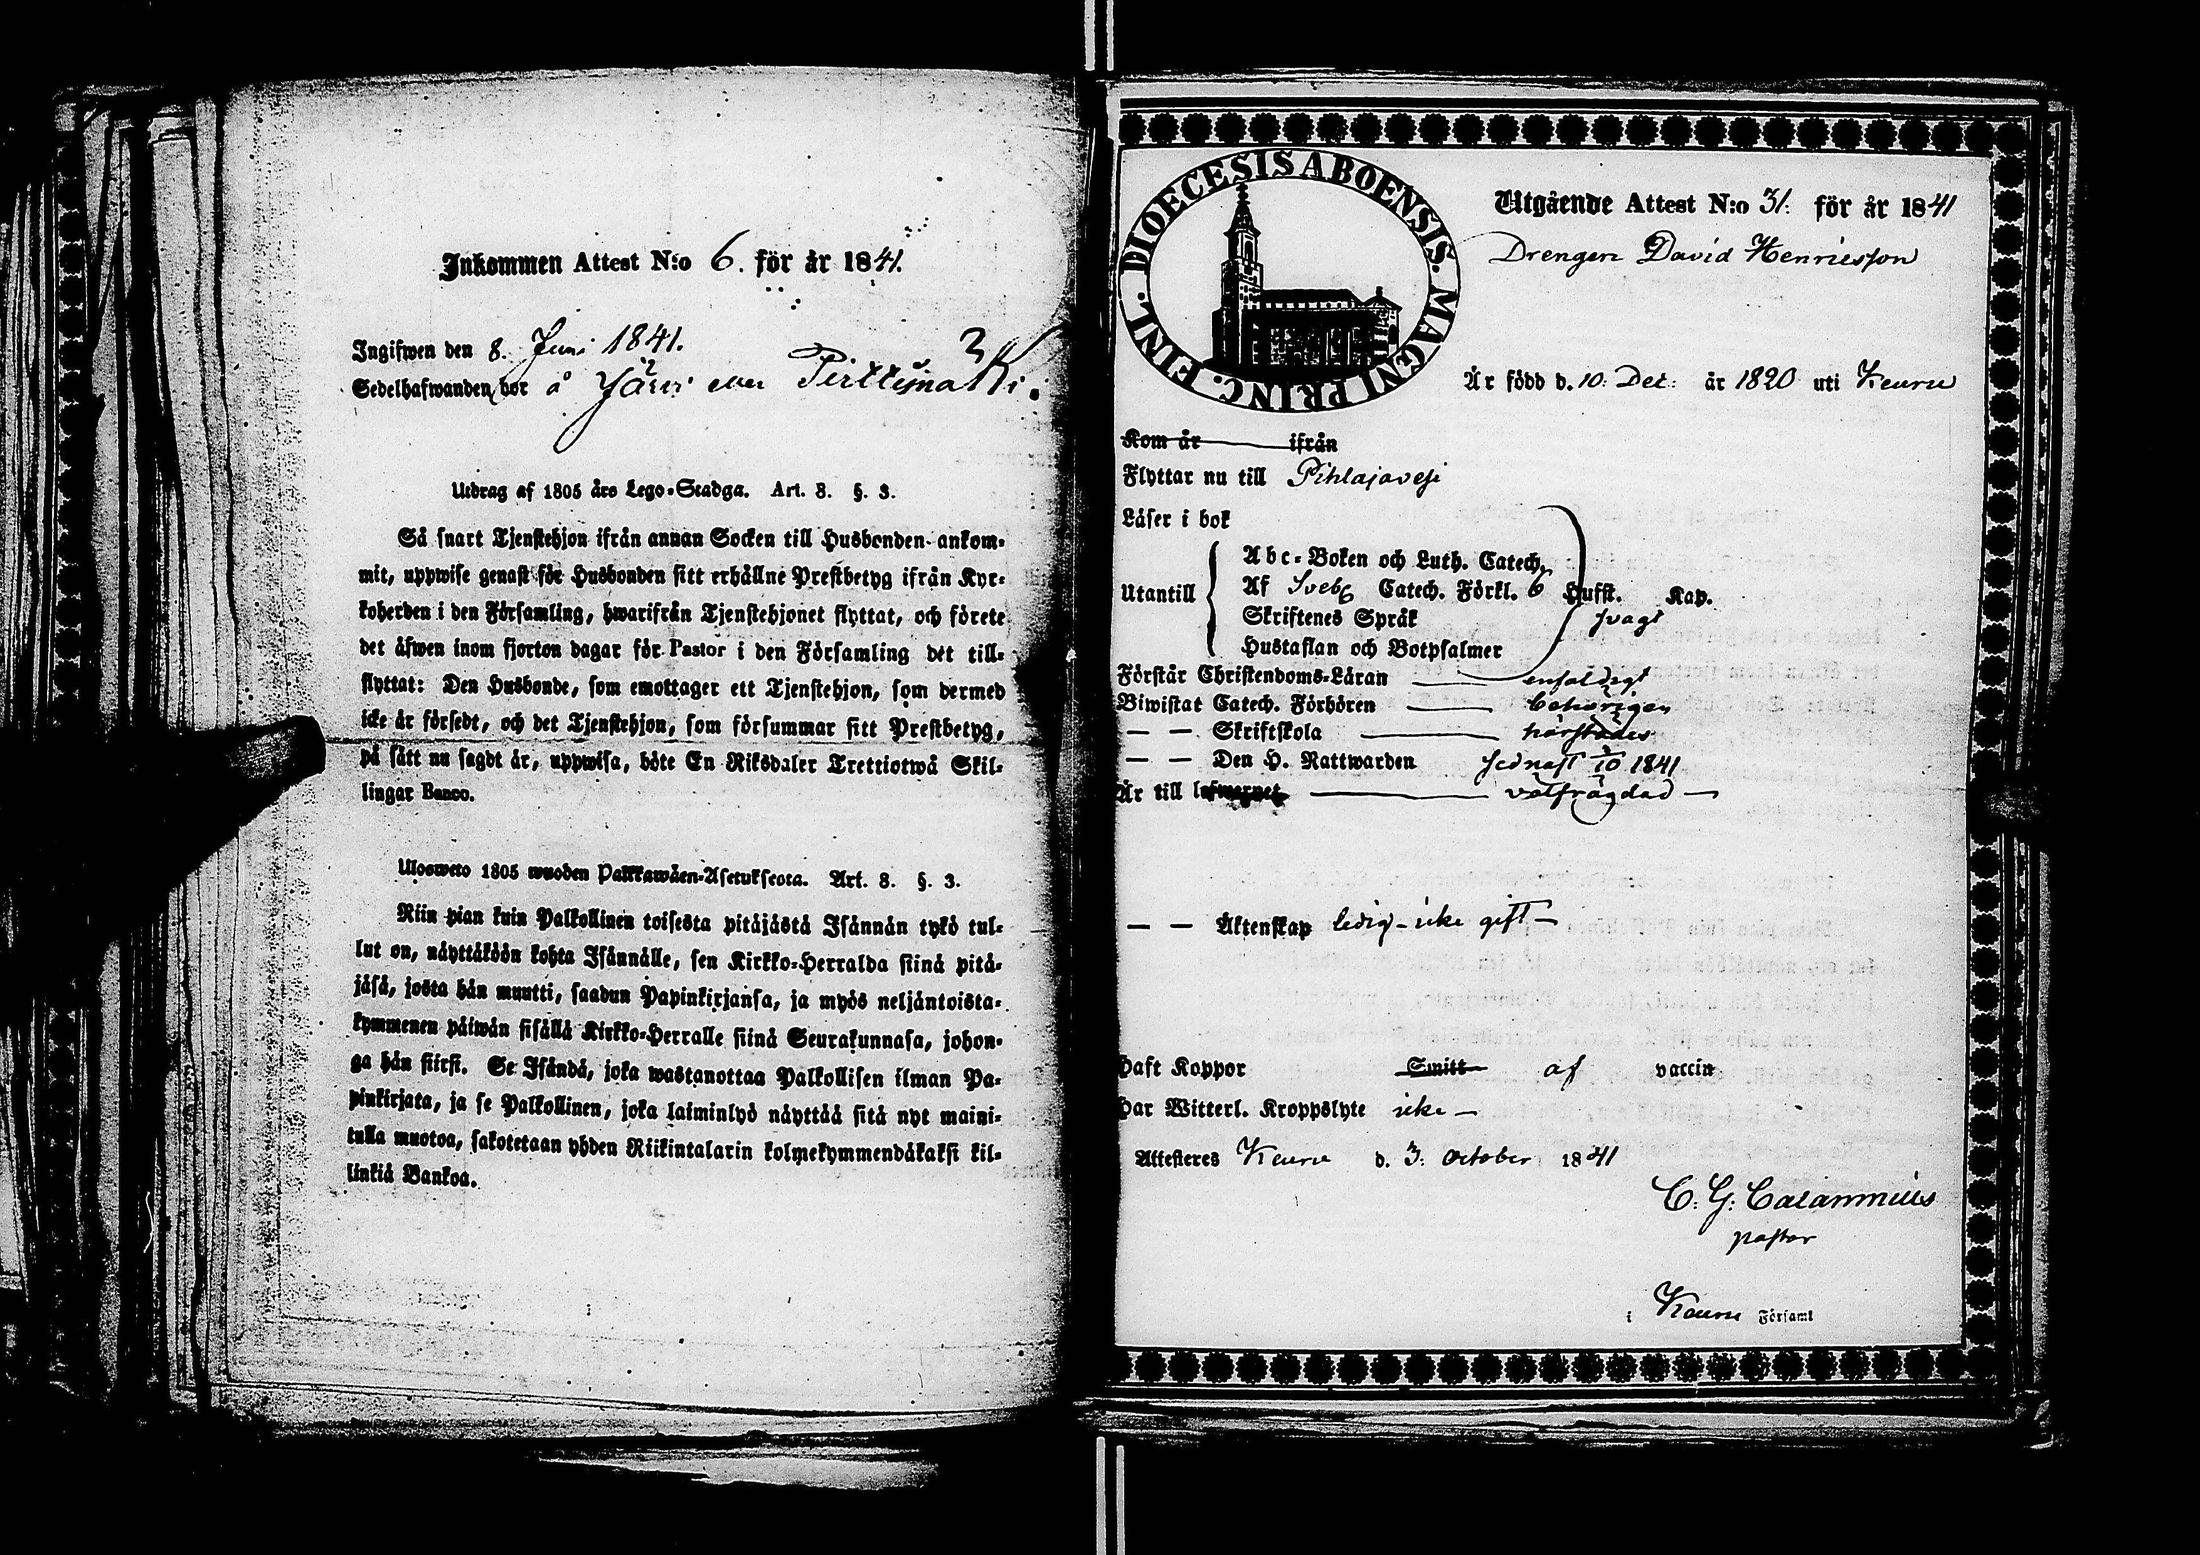 Inkommen Attest N:o 6. för år 1841.
Ingifwen den 8. Juni 1841.
Sedelhafwanden bor å Järvi eller Pirttijmäki.
Utdrag af 1805 års Lego-Stadga. Art. 8. §. 3.
Så snart Tjenstehjon ifrån annan Socken till Husbonden ankom-
mit, uppwise genast för Husbonden sitt erhållne Prestbetyg ifrån Kyr-
koherden i den Församling, hwarifrån Tjenstehjonet flyttat, och förete
det äfwen inom fjorton dagar för Pastor i den Församling det till-
flyttat: Den Husbonde, som emottager ett Tjenstehjon, som dermed
icke är försedt, och det Tjenstehjon, som försummar sitt Prestbetyg,
på sätt nu sagdt är, uppwisa, böte En Riksdaler Trettiotwå Skil-
lingar Banco.
Ulosweto 1805 wuoden Palkkawäen-Asetuksesta. Art. 8. §. 3.
Niin pian kuin Palkollinen toisesta pitäjästä Isännän tykö tul-
lut on, näyttäköön kohta Isännälle, sen Kirkko-Herralda siinä pitä-
jäsä, josta hän muutti, saadun Papinkirjansa, ja myös neljäntoista-
kymmenen päiwän sisällä Kirkko-Herralle siinä Seurakunnasa, johon-
ga hän siirsi. Se Isändä, joka wastanottaa Palkollisen ilman Pa-
pinkirjata, ja se Palkollinen, joka laiminlyö näyttää sitä nyt maini-
tulla muotoa, sakotetaan yhden Riikintalarin kolmekymmendäkaksi kil-
linkiä Bankoa.
DIOECESIS ABOENSIS. MAGNI PRINC. FINL.
Utgående Attest N:o 31. för år 1841
Drengen David Henricsson
Är född d. 10. Dec: år 1820 uti Keuru
Kom år ifrån
Flyttar nu till Pihlajavesi
Läser i bok
Abc-Boken och Luth. Catech.
Utantill Af Sveb Catech. Förkl. 6 Hufst. Kap.
Skriftenes Språk svagt
Hustaflan och Botpsalmer
Förstår Christendoms-Läran enfaldigt
Biwistat Catech. Förhören behörigen
— — Skriftskola härstädes
— — Den H. Nattwarden sednast 1841
Är till lefwernet välfrägdad —
— — Äktenskap ledig - icke gift —
Haft Koppor Smitt af vaccin
Har Witterl. Kroppslyte icke —
Attesteres Keuru d. 3. October 1841
C. G. Calamnius
pastor
i Keuru Församl